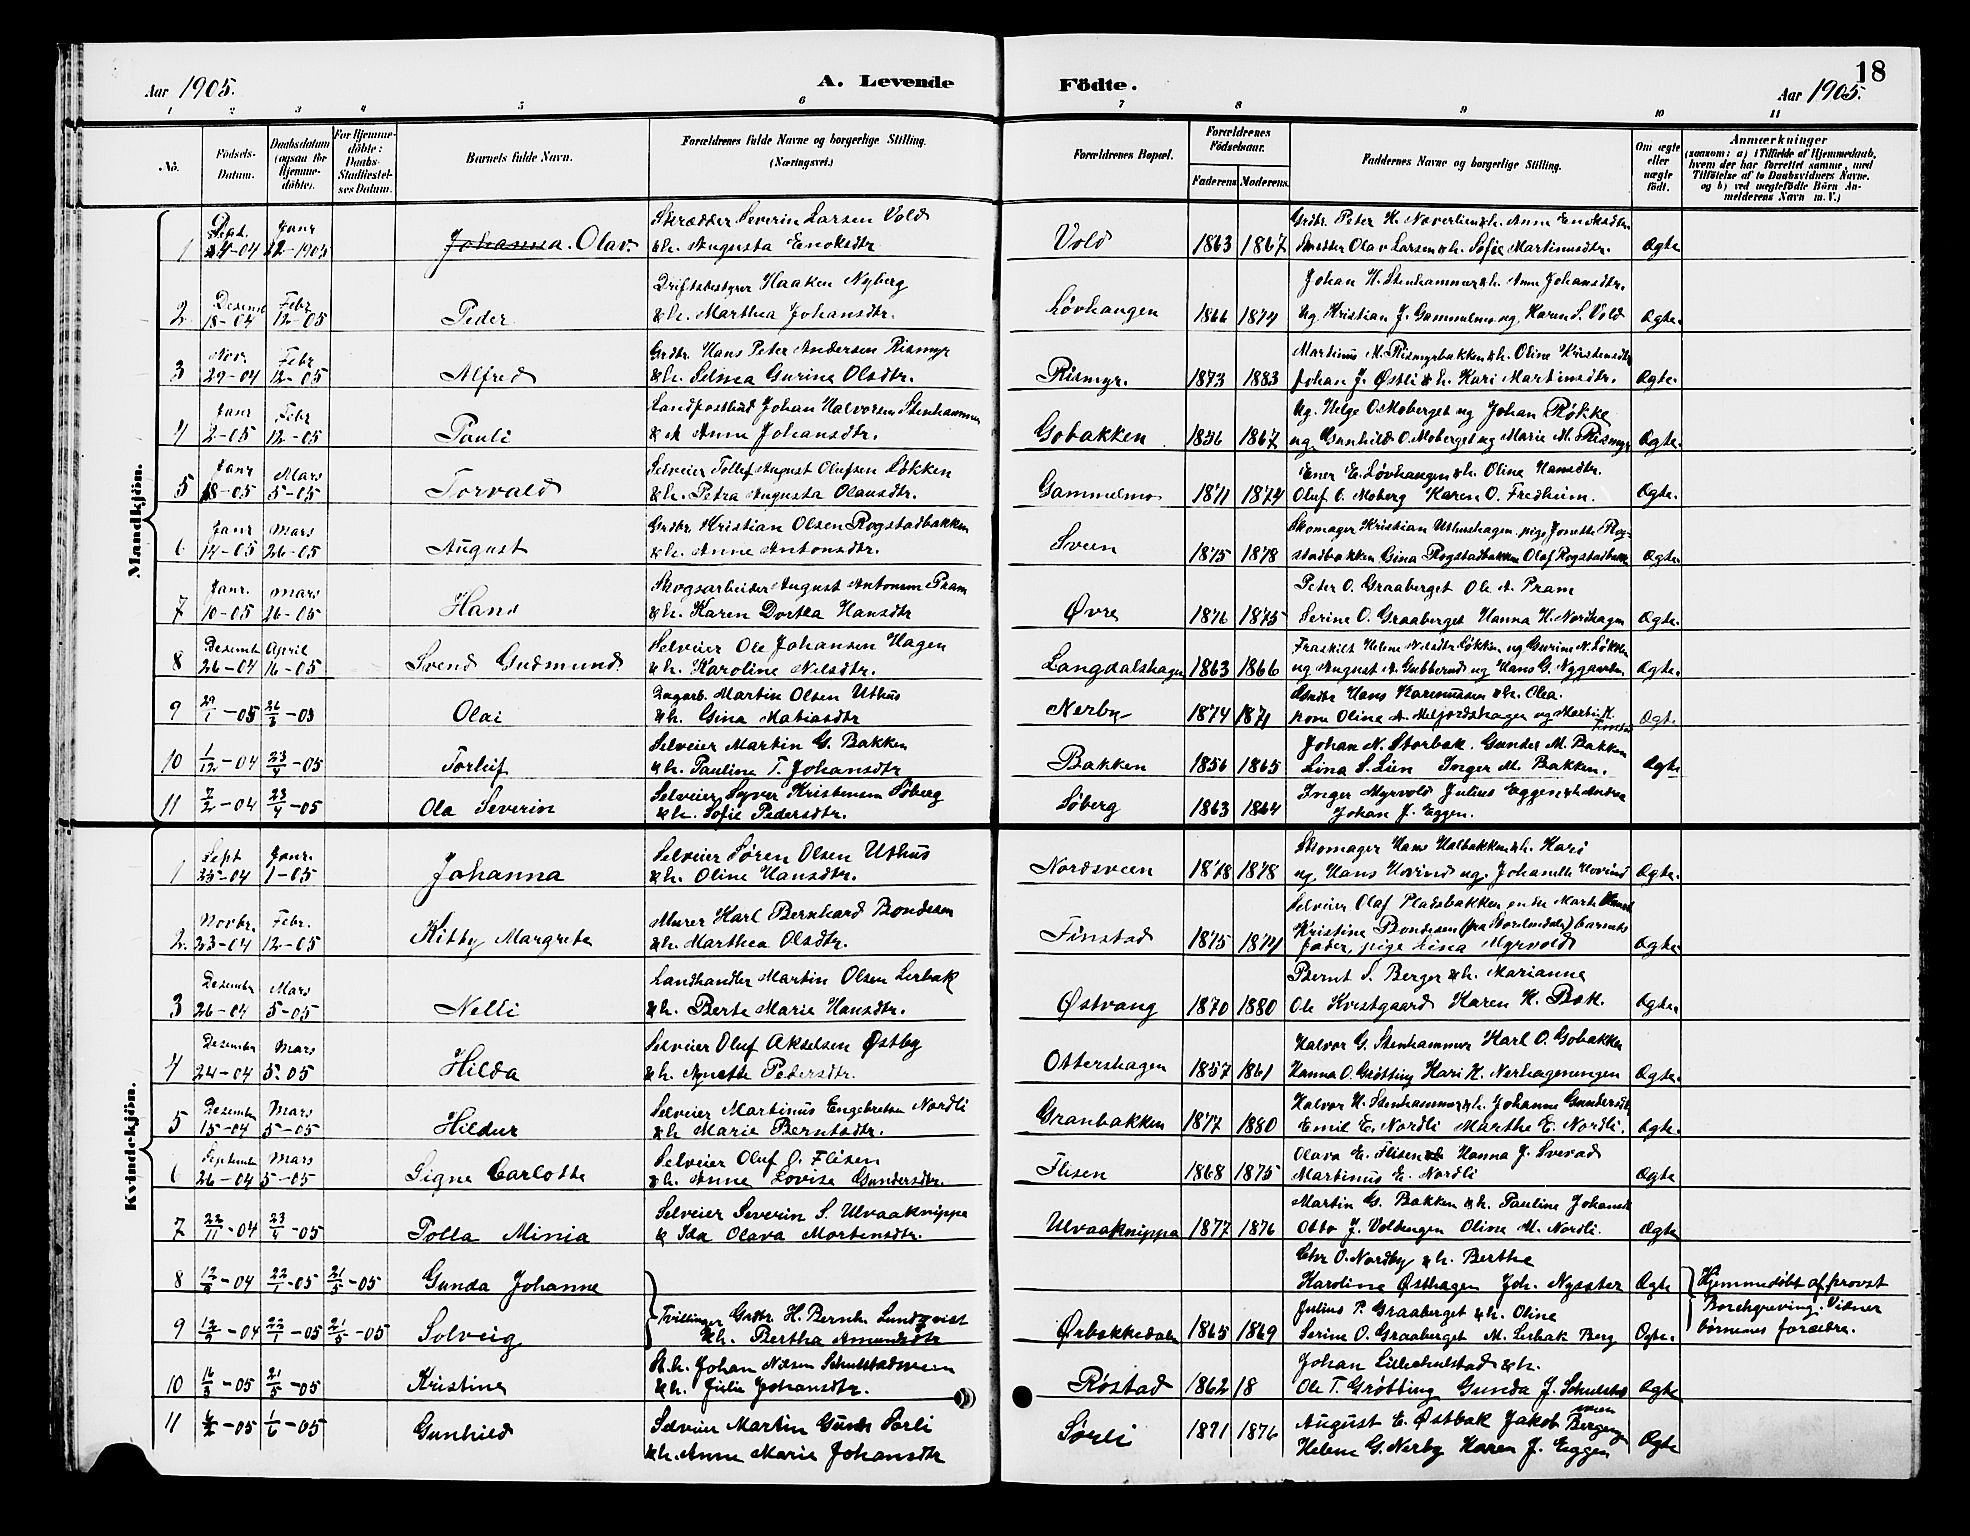 18
Aar 1905.
A. Levende
Födte.
Aar 1905.
1 2 3 4 5 6 7 8 9 10 11
No.
Födsels-Datum.
Daabsdatum (ogsaa for Hjemme-döbte).
For Hjemme-döbte: Daabs-Stadfæstel-ses Datum.
Barnets fulde Navn.
Forældrenes fulde Navne og borgerlige Stilling. (Næringsvei.)
Forældrenes Bopæl.
Forældrenes Födselsaar.
Faderens. Moderens.
Faddernes Navne og borgerlige Stilling.
Om ægte eller uægte født.
Anmærkninger (saasom: a) i Tilfælde af Hjemmedaab, hvem der har forrettet samme, med Tilföielse af to Daabsvidners Navne, og b) ved uægtefödte Börn An-melderens Navn m. V.)
Mandkjön.
1 Sept. 24-04 Janr 22-1905 Johanna. Olav. Skrædder Severin Larsen Vold Vold 1863 1867 Grdbr. Peter H. Naverlien & h. Anne Enoksdtr. Ægte
& h. Augusta Enoksdtr Olav Larsen & h. Sofie Martinusdtr.
2 Desembr 18-04 Febr 12-05 Peder Driftsbestyrer Haaken Nyberg Løvhaugen 1866 1874 Johan H. Stenhammer & h. Anne Johansdtr. Ægte.
& h. Marthea Johansdtr. Ug. Kristian J. Gammelmo ug. Karen S. Vold
3 Nov. 29-04 Febr 12-05 Alfred Grdbr. Hans Peter Andersen Rismyr Rismyr. 1873 1883 Martinus M. Rismyrbakken & h. Oline Kristensdtr Ægte.
& h. Selma Gurine Olsdtr. Johan J. Østli & h. Kari Martinsdtr.
4 Janr 2-05 Febr 12-05 Pauli Landpostbud Johan Halvorsen Stenhammer Gobakken 1856 1867 Ug. Helge O. Moberget ug Johan Røkke Ægte.
& h Anne Johansdtr. ug. Gunhild O. Moberget ug Marie M. Rismyr
5 Janr 18-05 Mars 5-05 Torvald Selveier Tollef August Olufsen Løkken Gammelmo 1871 1874 Ener E. Løvhaugen & h. Oline Hansdtr. Ægte.
& h. Petra Augusta Olausdtr. Oluf O. Moberg Karen O. Fredheim.
6 Janr 14-05 Mars 26-05 August Grdbr. Kristian Olsen Rogstadbakken Sveen 1875 1878 Skomager Kristian Uthushagen, pige Jonette Rog- Ægte.
& h. Anne Antonsdtr. stadbakken Gina Rogstadbakken Olaf Rogstadbakk
7 Janr. 10-05 Mars 26-05 Hans Skogsarbeider August Antonsen Pram Øvre 1876 1875 Peter O. Graaberget Ole A. Pram Ægte.
& h. Karen Dortea Hansdtr Serine O. Graaberget Hanna H. Nordhagen
8 Desembr 26-04 April 16-05 Svend Gudmund Selveier Ole Johansen Hagen Langdalshagen 1863 1866 Fraskilt Helene Nilsdtr Løkken ug Gurine N. Løkken Ægte.
& h. Karoline Nilsdtr. ug August A. Gubberud ug Hans G. Nygaarden
9 29/1-05 26/3-05 Olai Dagarb. Martin Olsen Uthus Nerby 1874 1871 Hans Rasmussen & h. Olea. Ægt.
& h. Gina Matiasdtr Oline A. Meljordshagen ug Martin H. Finstad
10 1/12-04 23/4-05 Torleif Selveier Martin G. Bakken Bakken 1856 1865 Johan N. Storbak. Gunder M. Bakken Ægte
& h. Pauline T. Johansdtr Lina S. Lien Inger M. Bakken.
11 2/2-04 23/4-05 Ola Severin Selveier Syver Kristensen Søberg Søberg 1863 1864 Inger Myrvold Julius Eggen & h. Andrea
& h. Sofie Pedersdtr. Johan J. Eggen.
Kvindekjön.
1 Sept 25-04 Janr. 1-05 Johanna Selveier Søren Olsen Uthus Nordsveen 1878 1878 Skomager Hans Halbakken & h. Kari Ægte.
& h. Oline Hansdtr. ug. Hans Hovind ug. Johanette Hovind
2. Novbr. 23-04 Febr. 12-05 Kitty Margrete Murer Karl Bernhard Bondesen Finstad 1875 1874 Selveier Olaf Pladsbakken enke Marte Ægte
& h. Marthea Olsdtr. Kristine Bondesen (fra Storelvdalen) barnets
fader, pige Lina Myrvold
3 Desember 26-04 Mars 5-05 Nelli Landhandler Martin Olsen Lerbak Østvang 1870 1880 Bernt S. Berger & h. Marianne Ægte.
& h. Berte Marie Hansdtr. Ole Kvistgaard Karen K. Bak.
4 Desember 24-04 Mars 5.05 Hilda Selveier Oluf Akselsen Østby Ottershagen 1857 1861 Halvor G. Stenhammer Karl O. Gobakken Ægte.
& h. Agnette Pedersdtr. Hanna O. Grøtting Kari H. Nerhagenengen
5 Desember 15-04 Mars 5-05 Hildur Selveier Martinus Engebretsen Nordli Granbakken 1877 1880 Halvor H. Stenhammer & h. Johanne Gundersdt Ægte.
& h Marie Berntsdtr. Emil E. Nordli Marthe E. Nordli.
6 September 26-04 Mars 5-05 Signe Carlotte Selveier Oluf O. Flisen Flisen 1868 1875 Olava E. Flisen Hanna J. Sverad Ægte
& h. Anne Lovise Gundersdtr. Martinus E. Nordli
7 22/11-04 23/4-05 Polla Minia Selveier Severin S. Ulvaaknippa Ulvaaknippa 1877 1876 Martin G. Bakken & h. Pauline Johansdt Ægte
& Ida Olava Mortensdtr. Otto J. Voldengen Oline M. Nordli.
8 12/8-04 22/1-05 21/5-05 Gunda Johanne Chr O. Nordby & h. Berthe Ægte Hjemmedøbt af provst
Karoline Østhagen Joh. Nysæter Borchgreving. Vidner
9 12/8-04 22/1-05 21/5-05 Solveig Tvillinger Grdbr. H. Bernh. Lundqvist Ørbækkedalen 1865 1869 Julius P. Graaberget & h. Oline Ægte. børnenes forældre.
& h. Bertha Amundsdtr Serine O. Graaberget M. Lerbak Berg
10 16/3-05 21/5-05 Kristine St. h. Johan Nilsen Schulstadsveen Røstad 1862 18 Johan Lilleschulstad & h. Ægte
& h. Julie Johansdtr. Ole T. Grøtting Gunda J. Schulstadsveen
11 -05 1/6-05 Gunhild Selveier Martin Sørli Sørli 1871 1876 August E. Østbak Jakob Bergeengen Ægte
& h. Anne Marie Johansdtr Helene G. Nerby Karen J. Eggen